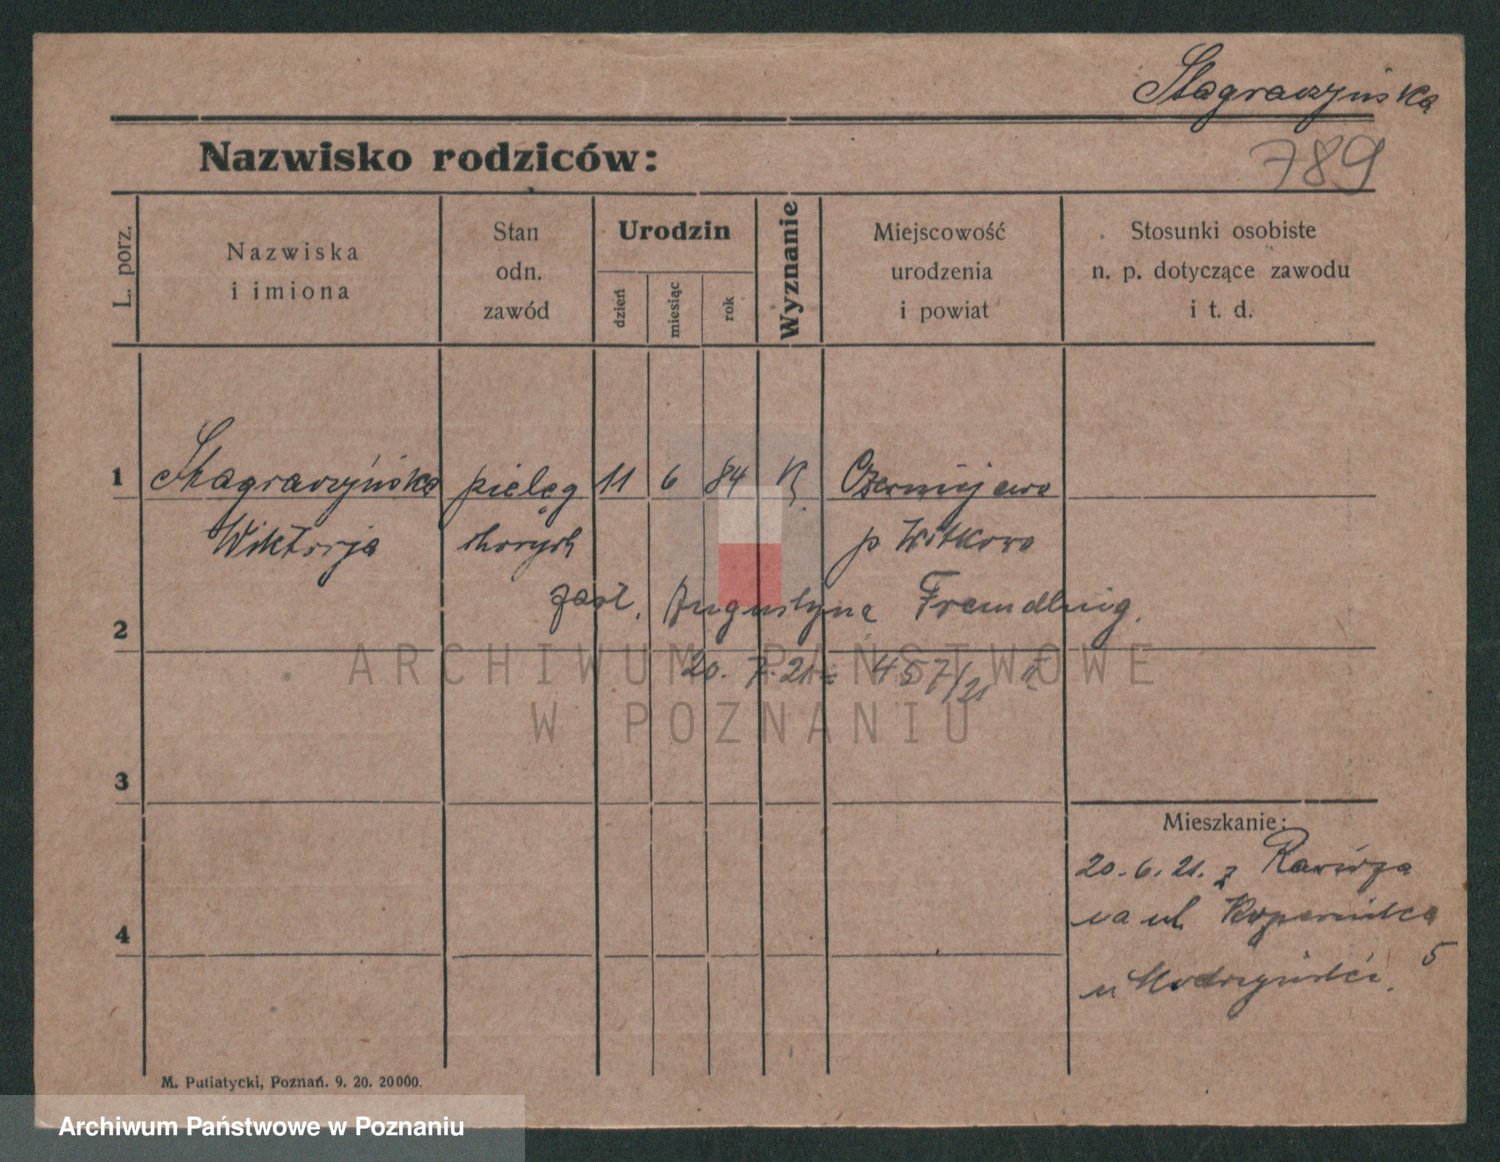 Stagraczyńska
Nazwisko rodziców:
789
L. porz.
Nazwiska
i imiona
Stan
odn.
zawód
Urodzin
dzień
miesiąc
rok
Wyznanie
Miejscowość
urodzenia
i powiat
Stosunki osobiste
n. p. dotyczące zawodu
i t. d.
1 Stagraczyńska pielęg 11 6 84 K. Czerniejewo
Wiktorja chorych p Witkowo
zast. Augustyna Fremdling.
2
20. 7. 21 457/21
ARCHIWUM PAŃSTWOWE
W POZNANIU
3
Mieszkanie:
20. 6. 21. z
na ul Kopernika
5
4
u Modrzyński
M. Putiatycki, Poznań. 9. 20. 20000.
Archiwum Państwowe w Poznaniu